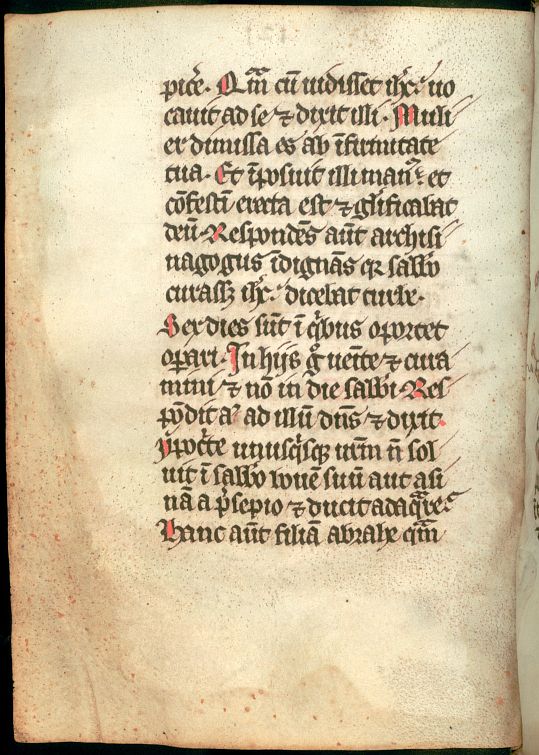 picẽ. Qm̃ cũ uidisset ihc̃. uo
cauit ad se ⁊ dixit illi. Muli
er dimissa es ab ĩfirmitate
tua. Et ĩposuit illi man9. et
cõfestĩ erecta est ⁊ gl̃ificabat
deũ. Respondẽs aũt archisi
nagogus ĩdignãs qꝛ sabb̃o
curass3 ihc̃. dicebat turbe.
Sex dies sũt ĩ qͥbus oportet
oꝑari. In hijs gͦ uenĩte ⁊ cura
mini ⁊ nõ in die sabb̃i. Res
põdit aͬ ad illũ dñs ⁊ dixit.
ypocͥte unusqͥsqꝫ urm̃ ñ sol
uit ĩ sabb̃o bouẽ suũ aut asi
nã a p̃sepio ⁊ ducit adaqͣre.
Hanc aũt filiã abrahe qm̃